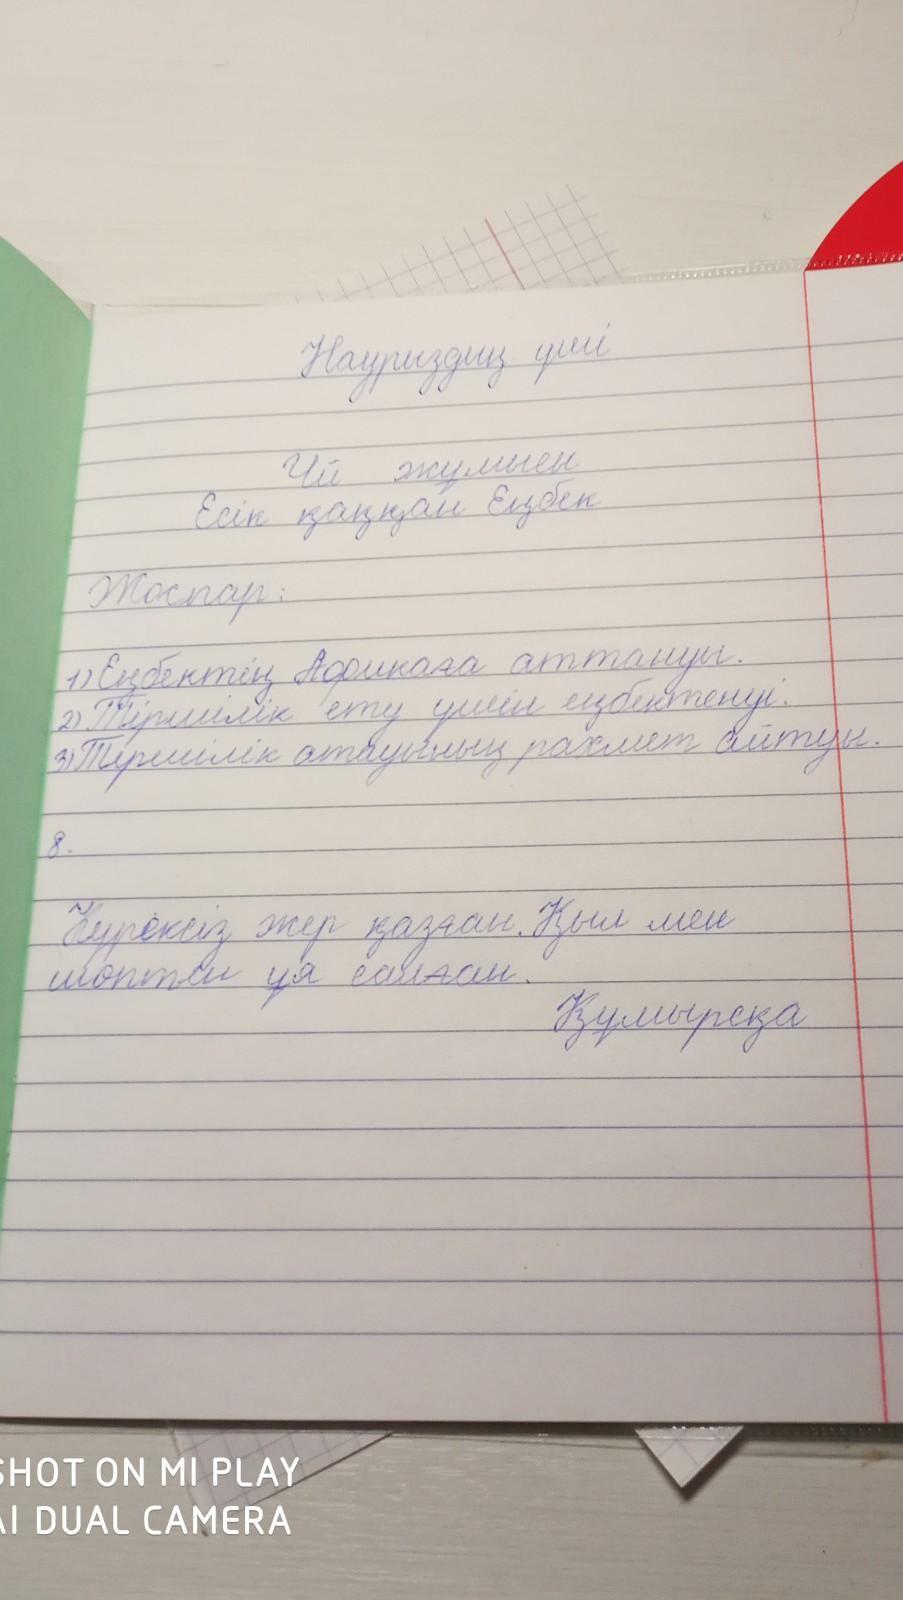 Науриздиң үші
Үй жұмыен
Есік қаққан Еңбек
Жоспар:
1) Еңбектің Африкаға аттануы.
2) Тіршілік ету үшін еңбектенуі.
3) Тіршілік атауының рахмет айтуы.
8.
Күрексіз жер қазған. Қыл мен
шөптен ұя салған.
Құмырсқа
SHOT ON MI PLAY
AI DUAL CAMERA